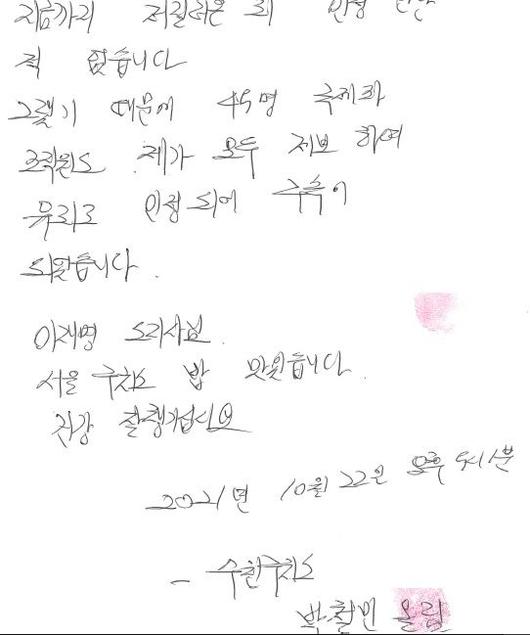 지금까지 저질러온 죄 인정 안한
적 없습니다
그렇기 때문에 45명 국제파
조직원도 제가 모두 제보 하여
유죄로 인정 되어 구속이
되었습니다.
이재명 도지사님.
서울 구치소 밥 맛있습니다.
건강 잘챙기십시요
2021년 10월 22일 오후 5시 1분
- 수원구치소
박철민 올림